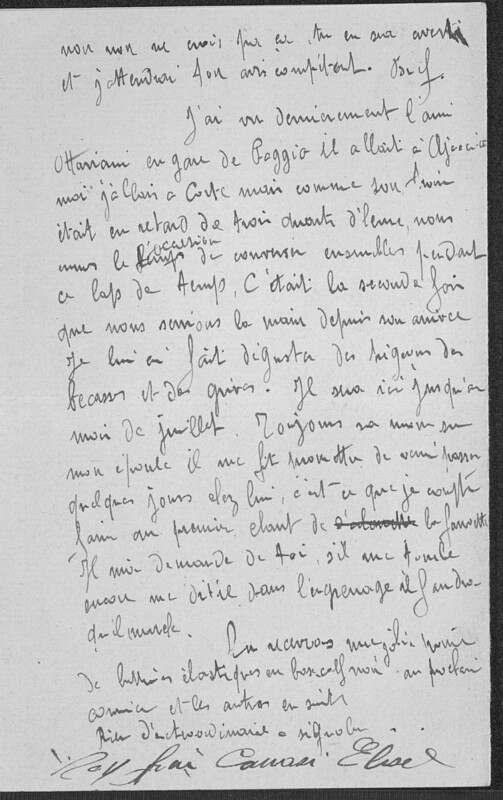 non non ne crois pas ca, tu en sera averti
et j'attendrai ton avis compétent. Bref.
J'ai vu dernierement l'ami
Ottaviani en gare de il allait à Ajaccio
moi j'allais a Corte mais comme son train
était en retard de trois quarts d'heure, nous
eumes le temps l'occasion de converser ensembles pendant
ce laps de temps, C'était la seconde fois
que nous serrions la main depuis son arrivée
Je lui ai fait déguster des pigeons des
becasses et des grives. Il sera ici jusqu'au
mois de juillet. Toujours sa main sur
mon épaule il me fit promettre de venir passer
quelques jours chez lui, c'est ce que je compte
faire au premier chant de la fauvette
Il m'a demandé de toi, s'il me tombe
encore me dit'il dans l'engrenage il faudra
qu'il marche. Tu recevras une jolie paire
de bottines élastiques en boxcalf noir au prochain
courrier et les autres en suite
Rien d'extraordinaire a signaler